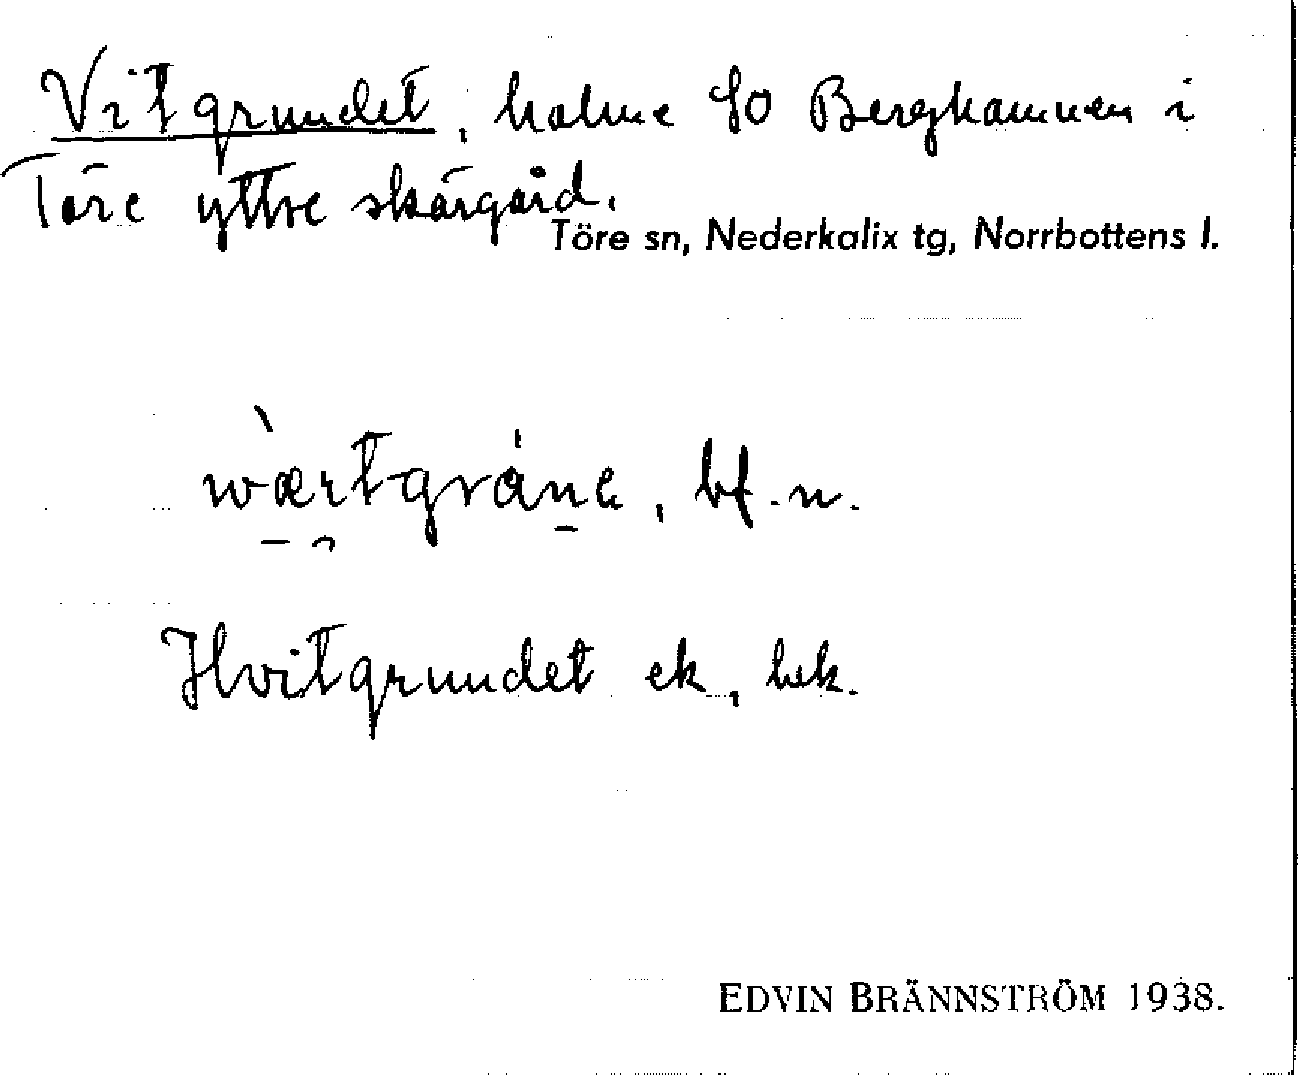 Vitgrundet, holme SO Berghamnen i
Töre yttre skärgård.
Töre sn, Nederkalix tg, Norrbottens l.
bf. n.
Hvitgrundet ek, bek.
EDVIN BRÄNNSTRÖM 1938.